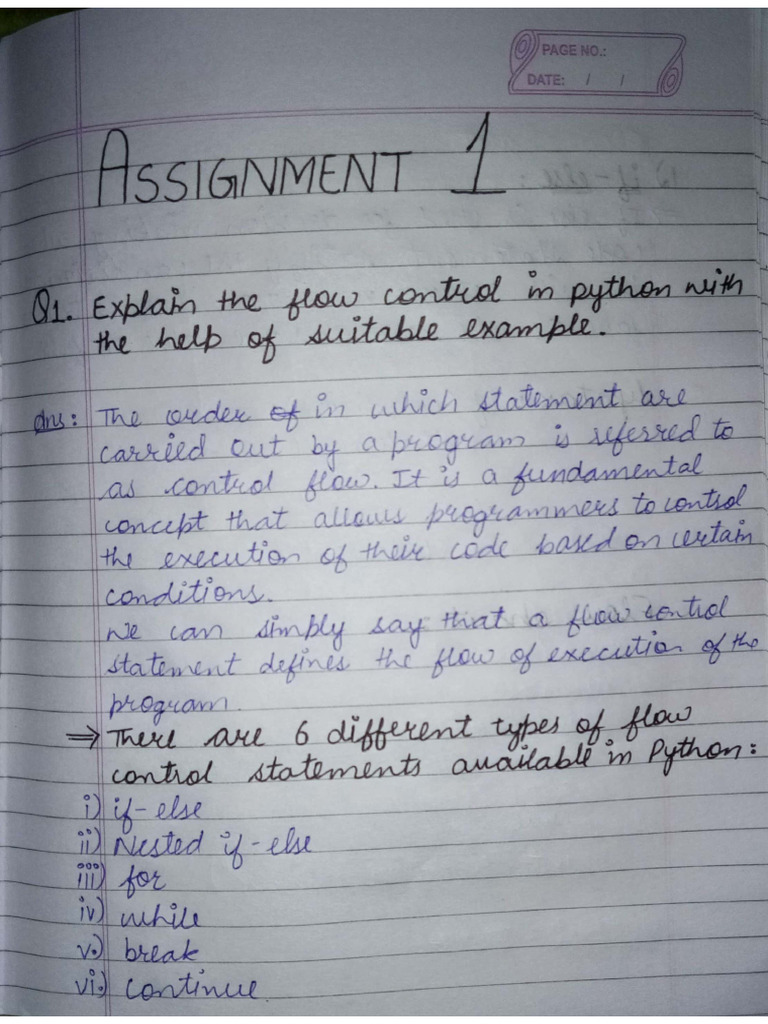 PAGE NO.:
DATE: / /
ASSIGNMENT 1
Q1. Explain the flow control in python with
the help of suitable example.
Ans: The order of in which statement are
carried out by a program is referred to
as control flow. It is a fundamental
concept that allows programmers to control
the execution of their code based on certain
conditions.
We can simply say that a flow control
statement defines the flow of execution of the
program.
⇒ There are 6 different types of flow
control statements available in Python:
i) if-else
ii) Nested if-else
iii) for
iv) while
v.) break
vi.) continue